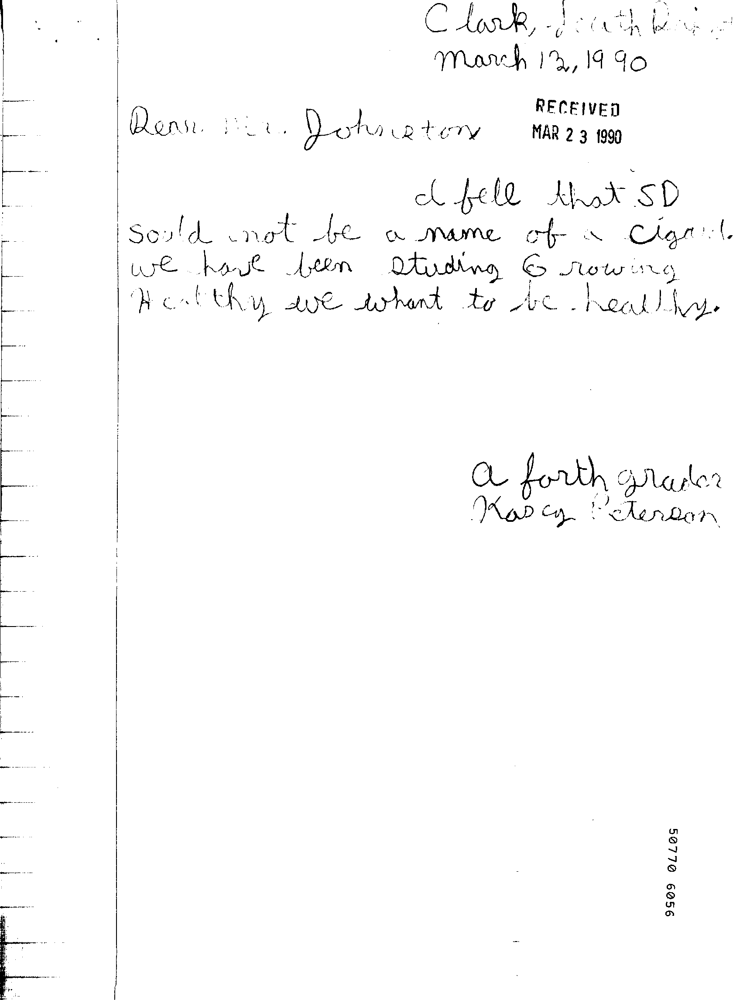 Clark, South
March 13, 1990
RECEIVED
MAR 23 1990
Dear Mr. Johnston
I fell that SD
sould not be a name of a
we have been studing Growing
Healthy we whant to be healthy.
a forth grader
Kasey Peterson
50770 6056